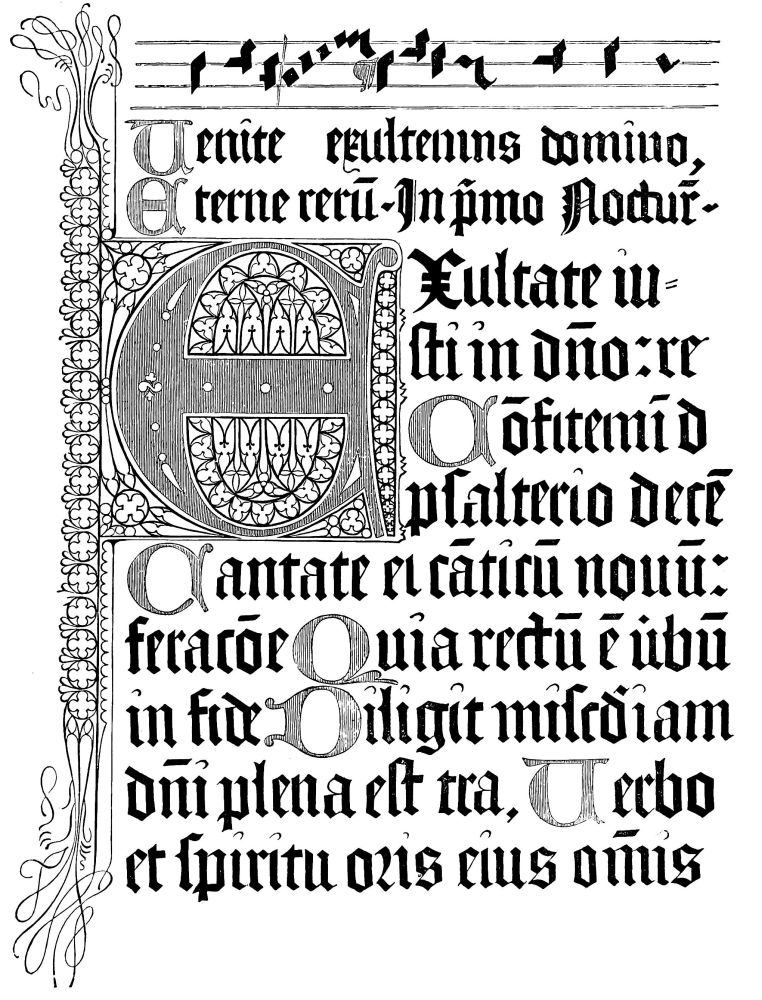 Uenite exultemus domino,
Eterne rerū - In p̄mo Noctur̄ -
EXultate iu=
sti in dn̄o: re
Cōfitemī d
psalterio decē
Cantate ei cāticū nouū:
feracōe Quia rectū ē ůbū
in fide Diligit misc̄diam
dn̄i plena est tra, Uerbo
et spiritu oris eius om̄is